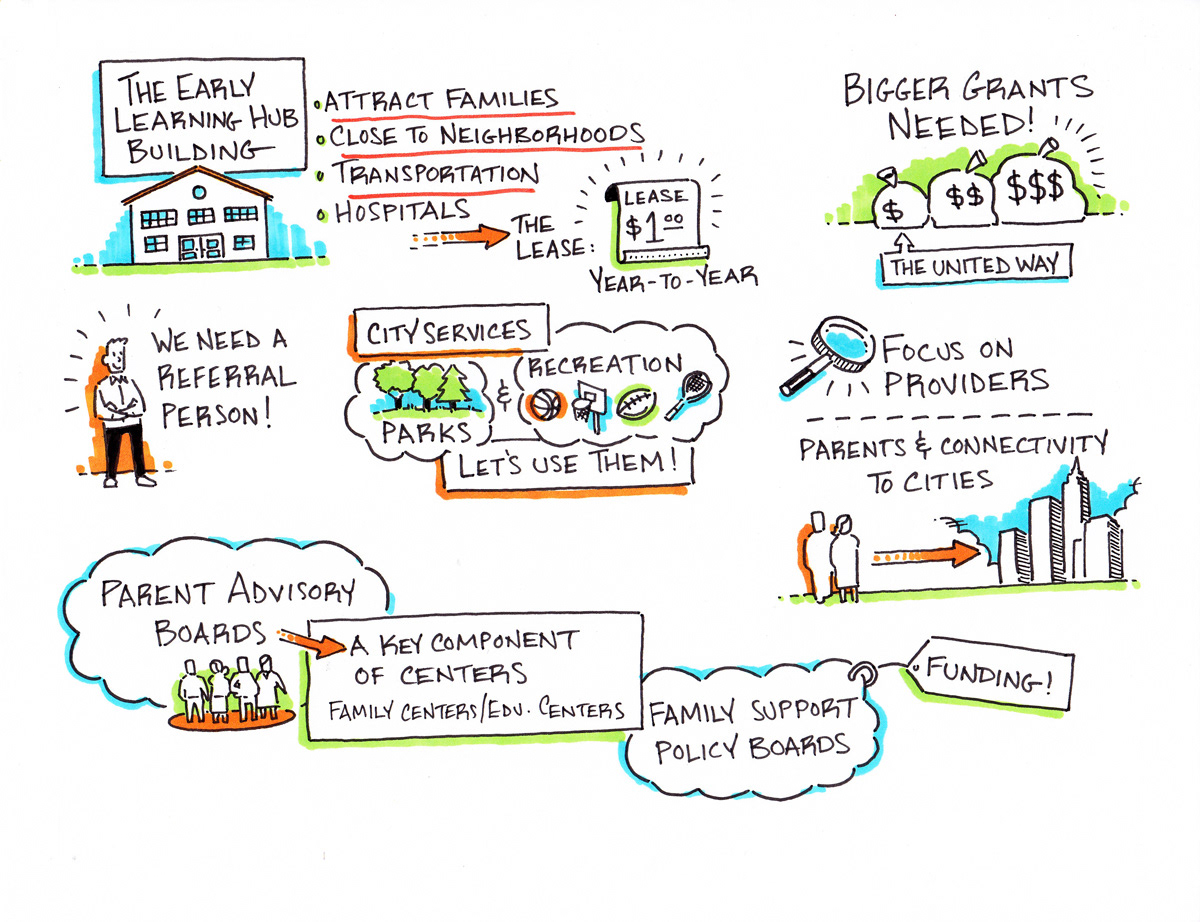 THE EARLY
LEARNING HUB
BUILDING
• ATTRACT FAMILIES
• CLOSE TO NEIGHBORHOODS
• TRANSPORTATION
• HOSPITALS
THE
LEASE:
LEASE
$1.00
YEAR-TO-YEAR
BIGGER GRANTS
NEEDED!
$
$$
$$$
THE UNITED WAY
WE NEED A
REFERRAL
PERSON!
CITY SERVICES
PARKS
&
RECREATION
LET'S USE THEM!
FOCUS ON
PROVIDERS
PARENTS & CONNECTIVITY
TO CITIES
PARENT ADVISORY
BOARDS
A KEY COMPONENT
OF CENTERS
FAMILY CENTERS/EDU. CENTERS
FAMILY SUPPORT
POLICY BOARDS
FUNDING!